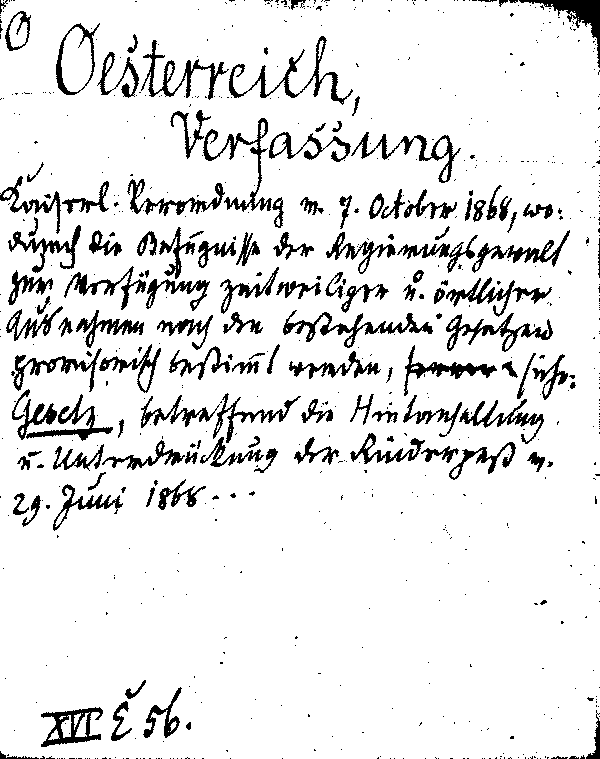 O
Oesterreich,
Verfassung.
Kaiserl. Verordnung v. 7. October 1868, wo:
durch die Befugnisse der Regierungsgewalt
zur Verfügung zeitweiliger u. örtlicher
Ausnahmen von den bestehenden Gesetzen
provisorisch bestimmt werden, ferner siehe:
Gesetz, betreffend die Hintanhaltung
u. Unterdrückung der Rinderpest v.
29. Juni 1868 - - -
XVI E 56.